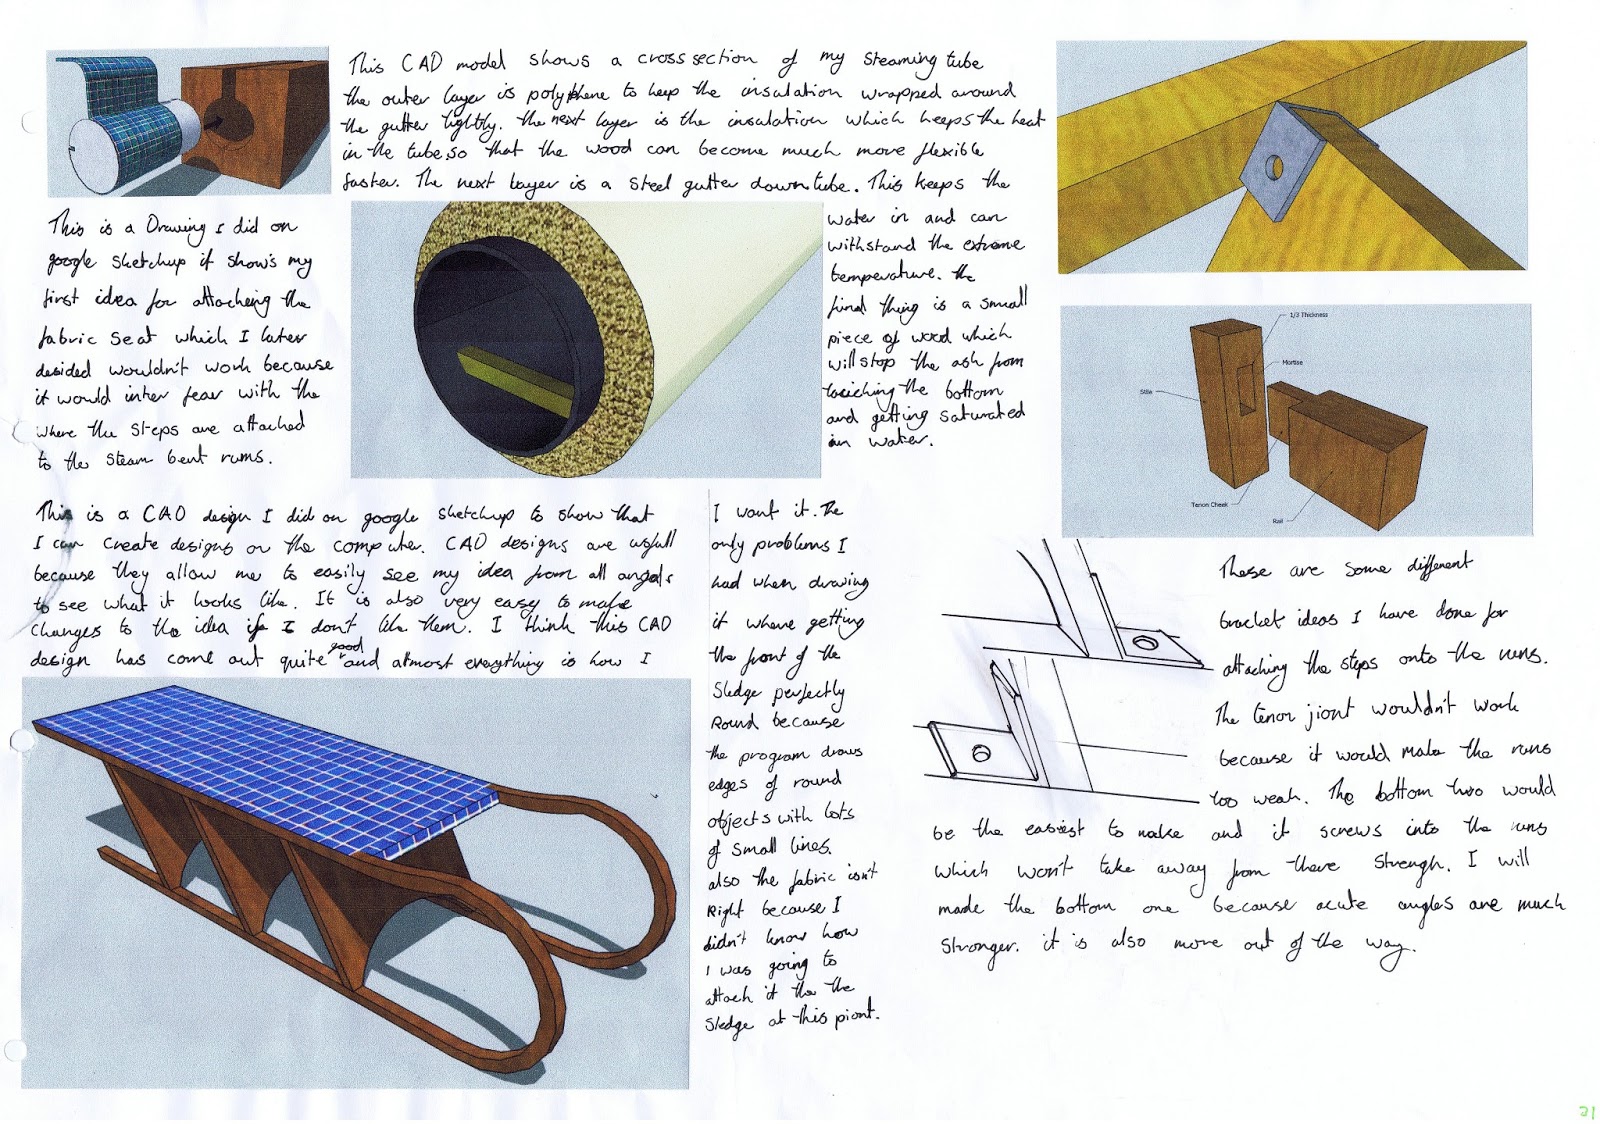 This CAD model shows a crossection of my steaming tube
the outer layer is polythene to keep the insulation wrapped around
the gutter tightly. The next layer is the insulation which keeps the heat
in the tube, so that the wood can become much more flexible
faster. The next layer is a steel gutter down tube. This keeps the
water in and can
withstand the extreme
temperature. the
final thing is a small
piece of wood which
will stop the ash from
the bottom
and getting saturated
in water.
This is a Drawing I did on
google sketchup it show's my
first idea for attacheing the
fabric seat which I later
desided wouldn't work because
it would inter fear with the
where the steps are attached
to the steam bent runs.
This is a CAD design I did on google sketchup to show that
I can create designs on the computer. CAD designs are usfull
because they allow me to easily see my idea from all angels
to see what it looks like. It is also very easy to make
changes to the idea if I don't like them. I think this CAD
design has come out quite good and almost everything is how I
I want it. The
only problems I
had when drawing
it where getting
the front of the
Sledge perfectly
Round because
the program draws
edges of round
objects with lots
of small lines.
also the fabric isn't
Right because I
didn't know how
I was going to
attach it the the
Sledge at this piont.
1/3 Thickness
Mortise
Stile
Tenon Cheek
Rail
These are some different
bracket ideas I have done for
attaching the steps onto the runs.
The tenor jiont wouldn't work
because it would make the runs
too weak. The bottom two would
be the easiest to make and it screws into the runs
which won't take away from there strengh. I will
made the bottom one because acute angles are much
stronger. it is also more out of the way.
21